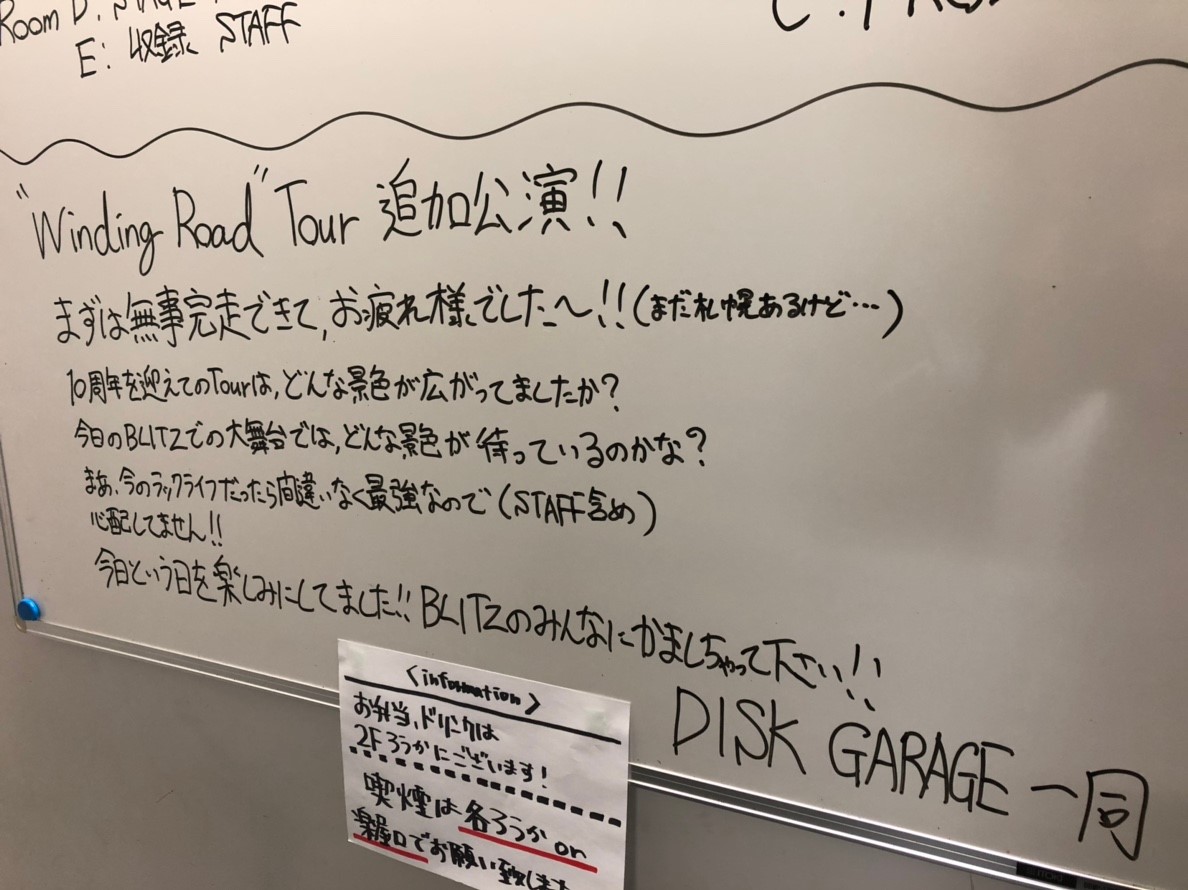 Room D: STAGE
E: 収録 STAFF
"Winding Road" Tour 追加公演!!
まずは無事完走できて,お疲れ様でした〜!!(まだ札幌あるけど…)
10周年を迎えてのTourは,どんな景色が広がってましたか?
今日のBLITZでの大舞台では,どんな景色が待っているのかな?
まあ、今のラックライフだったら間違いなく最強なので(STAFF含め)
心配してません!!
今日という日を楽しみにしてました!! BLITZのみんなにかましちゃって下さい!!
DISK GARAGE 一同
<information>
お弁当、ドリンクは
2Fろうかにございます!
喫煙は各ろうか or
楽屋口でお願い致します